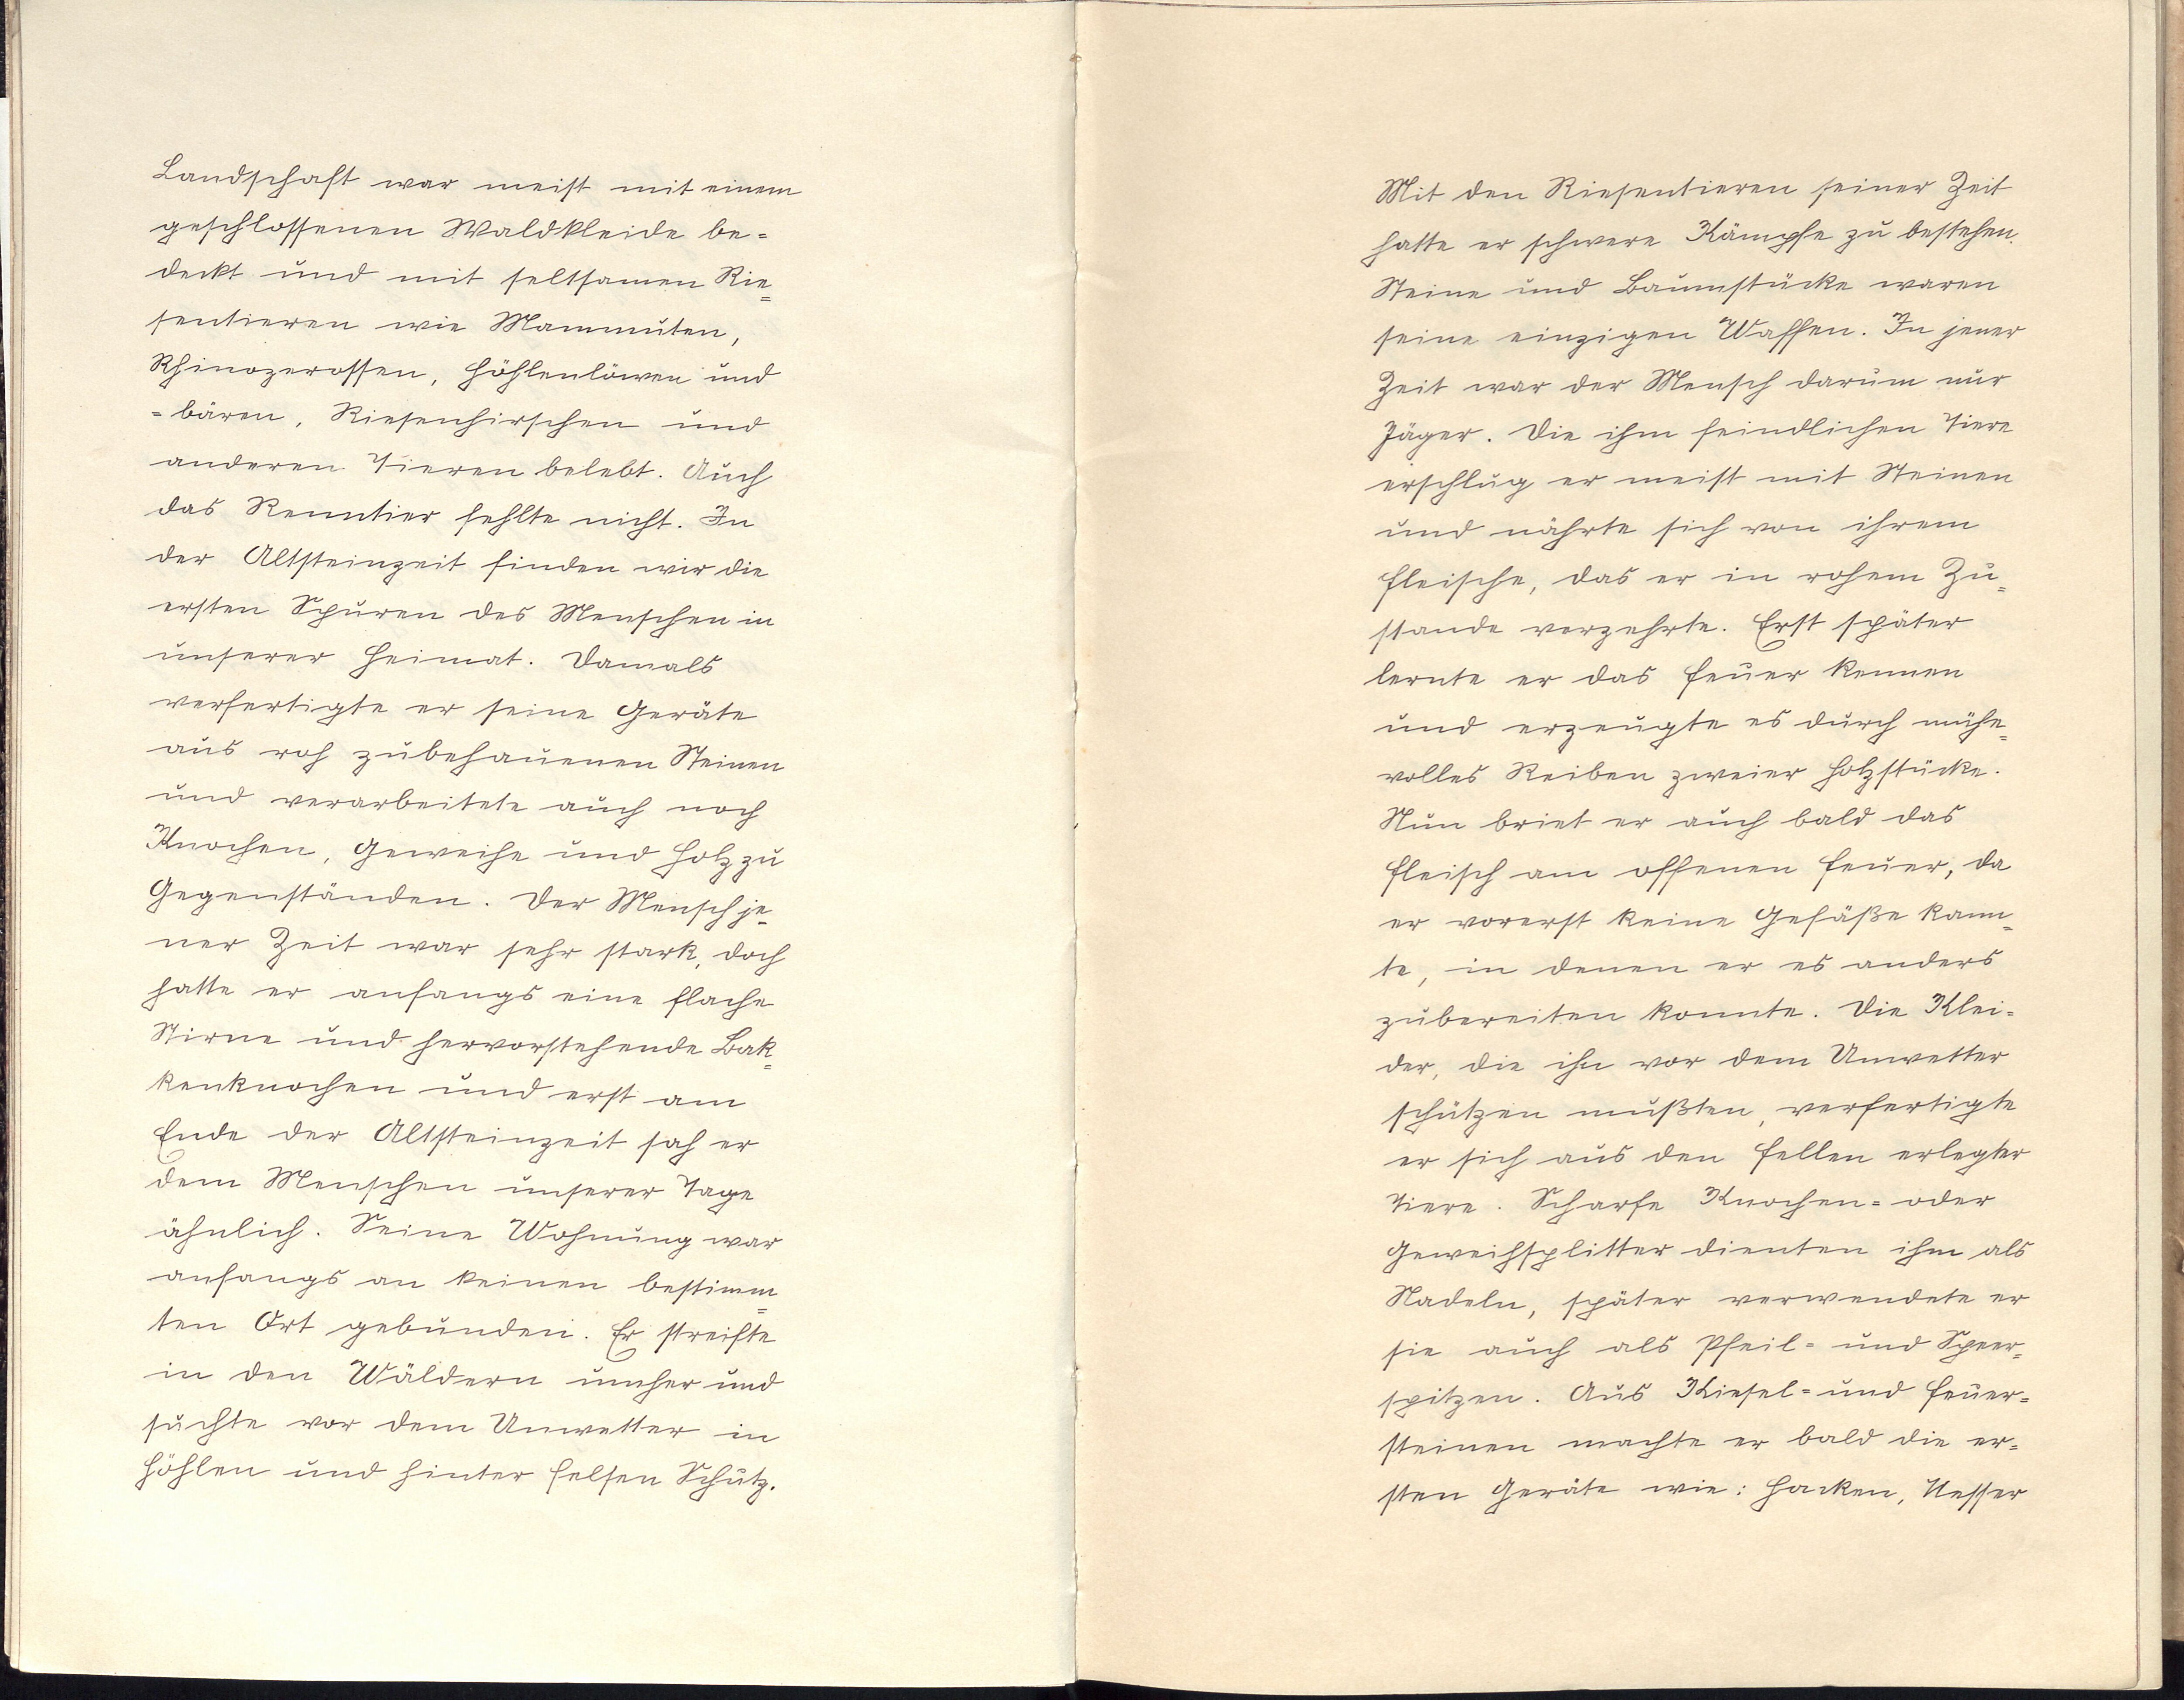 Landschaft war meist mit einem
geschlossenen Waldkleide be=
deckt und mit seltsamen Rie=
sentieren wie Mammuten,
Rhinozerossen, Höhlenlöwen und
=bären, Riesenhirschen und
anderen Tieren belebt. Auch
das Renntier fehlte nicht. In
der Altsteinzeit finden wir die
ersten Spuren des Menschen in
unserer Heimat. Damals
verfertigte er seine Geräte
aus roh zubehauenen Steinen
und verarbeitete auch noch
Knochen, Geweihe und Holz zu
Gegenständen. Der Mensch je=
ner Zeit war sehr stark, doch
hatte er anfangs eine flache
Stirne und hervorstehende Bak=
kenknochen und erst am
Ende der Altsteinzeit sah er
dem Menschen unserer Tage
ähnlich. Seine Wohnung war
anfangs an keinen bestimm=
ten Ort gebunden. Er streifte
in den Wäldern umher und
suchte vor dem Unwetter in
Höhlen und hinter Felsen Schutz.
Mit den Riesentieren seiner Zeit
hatte er schwere Kämpfe zu bestehen.
Steine und Baumstücke waren
seine einzigen Waffen. In jener
Zeit war der Mensch darum nur
Jäger. Die ihm feindlichen Tiere
erschlug er meist mit Steinen
und nährte sich von ihrem
Fleische, das er in rohem Zu=
stande verzehrte. Erst später
lernte er das Feuer kennen
und erzeugte es durch mühe=
volles Reiben zweier Holzstücke.
Nun briet er auch bald das
Fleisch am offenen Feuer, da
er vorerst keine Gefäße kann=
te, in denen er es anders
zubereiten konnte. Die Klei=
der, die ihn vor dem Unwetter
schützen mußten, verfertigte
er sich aus den Fellen erlegter
Tiere. Scharfe Knochen= oder
Geweihsplitter dienten ihm als
Nadeln, später verwendete er
sie auch als Pfeil= und Speer=
spitzen. Aus Kiesel= und Feuer=
steinen machte er bald die er=
sten Geräte wie: Hacken, Messer